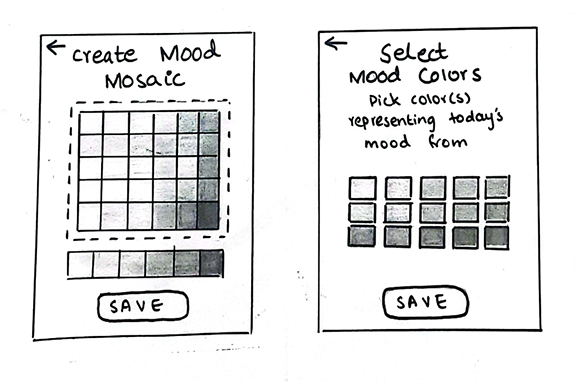 ← Create Mood
Mosaic
SAVE
← Select
Mood Colors
Pick color(s)
representing today's
mood from
SAVE